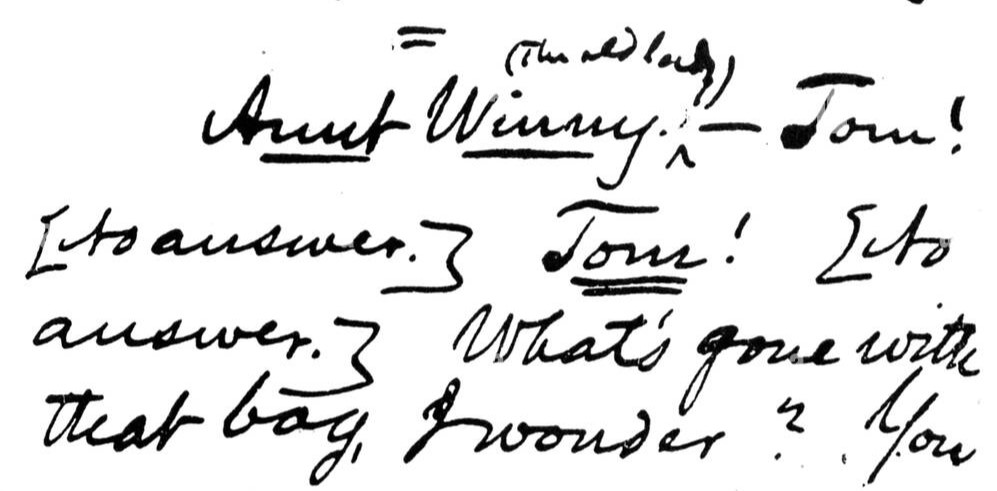 (The old lady)
Aunt Winny. ^ — Tom!
[No answer.] Tom! [No
answer.] What's gone with
that boy, I wonder? You